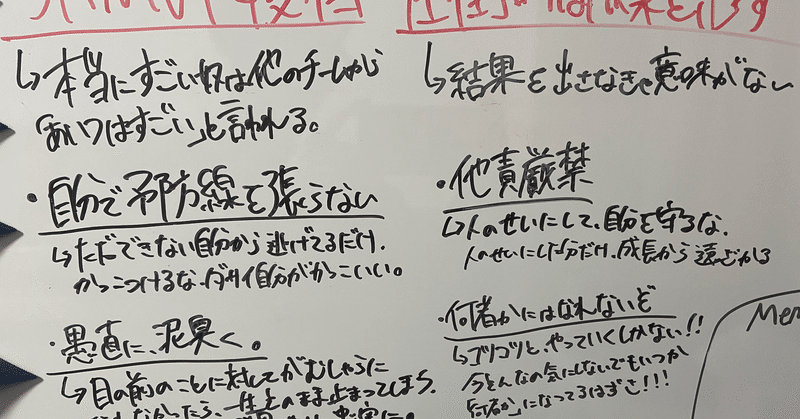 ↳本当にすごい奴は他のチームから
「あいつはすごい」と言われる。
・自分で予防線を張らない
↳ただできない自分から逃げてるだけ.
かっこつけるな.ダサイ自分がかっこいい。
・愚直に、泥臭く。
↳目の前のことに対してがむしゃらに
↳結果を出さなきゃ意味がない
・他責厳禁
↳人のせいにして、自分を守るな.
人のせいにした分だけ、成長から遠ざかる
・何者かにはなれないぞ
↳コツコツと、やっていくしかない!!
になってるはずさ!!!
Mem